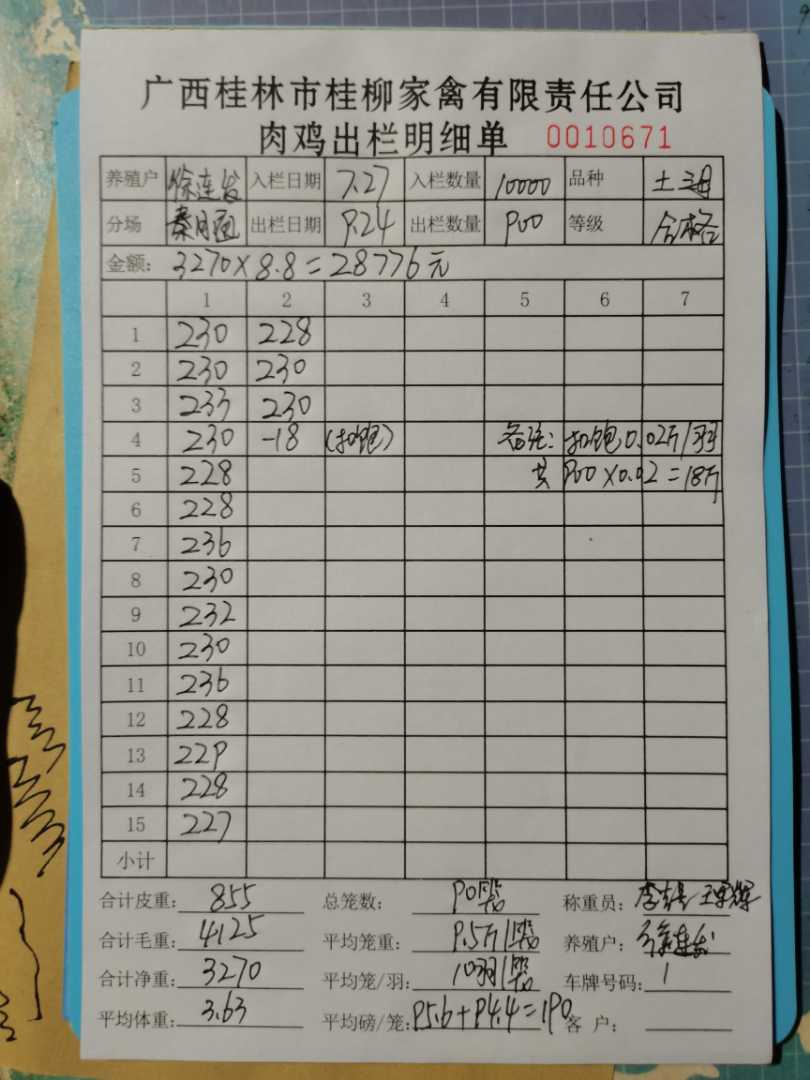 广西桂林市桂柳家禽有限责任公司
肉鸡出栏明细单 0010671
养殖户 徐连发 入栏日期 7.27 入栏数量 10000 品种 土
分场 秦 出栏日期 9.24 出栏数量 900 等级 合格
金额: 3270×8.8=28776元
1 2 3 4 5 6 7
1 230 228
2 230 230
3 233 230
4 230 -18 (扣饱) 备注: 扣饱0.02斤/羽
5 228 共 900×0.02=18斤
6 228
7 236
8 230
9 232
10 230
11 236
12 228
13 229
14 228
15 227
小计
合计皮重: 855 总笼数: 90 称重员:
合计毛重: 4125 平均笼重: 9.5斤/ 养殖户: 徐连发
合计净重: 3270 平均笼/羽: 10羽/ 车牌号码: 1
平均体重: 3.63 平均磅/笼: 95.6+94.4=190 客 户: